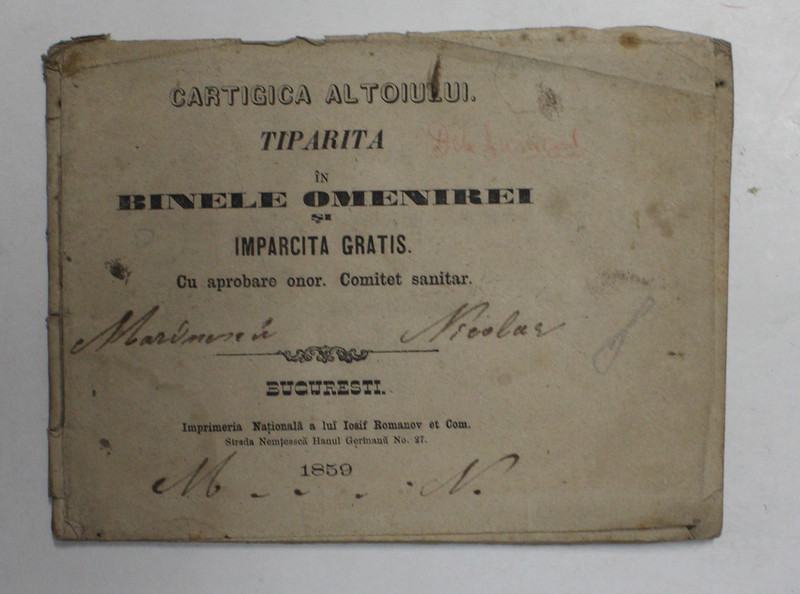 CARTIGICA ALTOIULUI.
TIPARITA
ÎN
BINELE OMENIREI
ȘI
IMPARCITA GRATIS.
Cu aprobare onor. Comitet sanitar.
Marinescu Nicolae
BUCURESTI.
Imprimeria Națională a luĭ Iosif Romanov et Com.
Strada Nemțească Hanul Germană No. 27.
1859
M N.